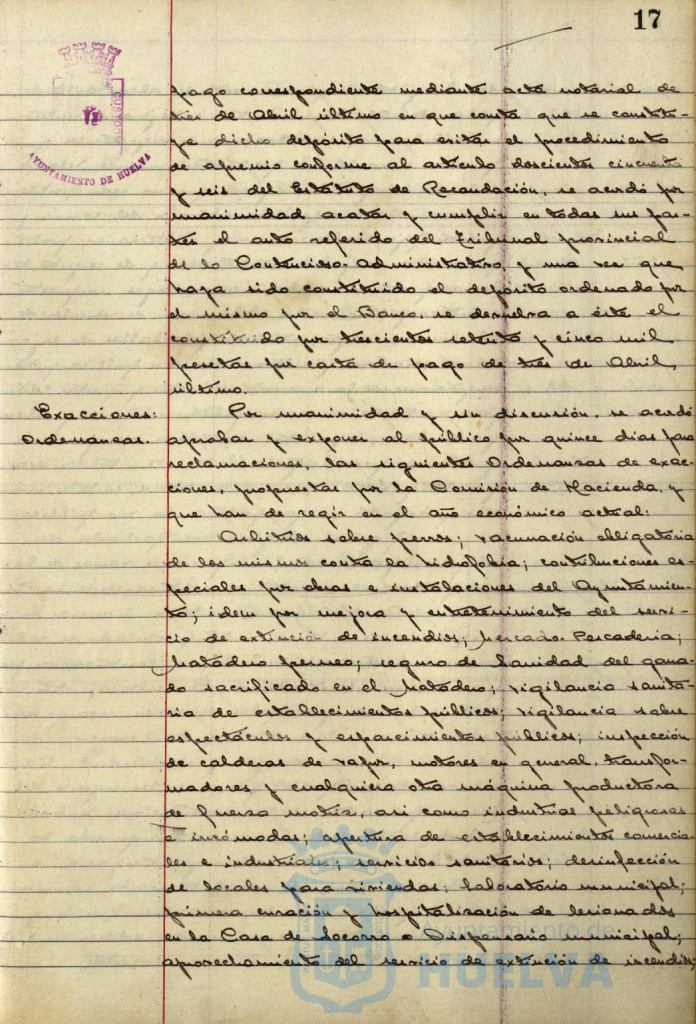 17
CUSTODI
AYUNTAMIENTO DE HUELVA
pago correspondiente mediante acta notarial de
tres de Abril último en que consta que se constitu-
ye dicho depósito para evitar el procedimiento
de apremio conforme al artículo doscientos cincuenta
y seis del Estatuto de Recaudación, se acordó por
unanimidad acatar y cumplir en todas sus par-
tes el auto referido del Tribunal provincial
de lo Contencioso-administrativo, y una vez que
haya sido constituido el depósito ordenado por
el mismo por el Banco, se devuelva a éste el
constituido por trescientas setenta y cinco mil
pesetas por carta de pago de tres de Abril,
último.
Exacciones:
Ordenanzas.
Por unanimidad y sin discusión, se acordó
aprobar y exponer al público por quince días para
reclamaciones, las siguientes Ordenanzas de exac-
ciones, propuestas por la Comisión de Hacienda, y
que han de regir en el año económico actual:
Arbitrios sobre perros; vacunación obligatoria
de los mismos contra la hidrofobia; contribuciones es-
peciales por obras e instalaciones del Ayuntamien-
to; idem por mejora y entretenimiento del servi-
cio de extinción de incendios; Mercado-Pescadería;
Matadero ; seguro de Sanidad del gana-
do sacrificado en el Matadero; vigilancia sanita-
ria de establecimientos públicos; vigilancia sobre
espectáculos y esparcimientos públicos; inspección
de calderas de vapor, motores en general, transfor-
madores y cualquiera otra máquina productora
de fuerza motriz, asi como industrias peligrosas
e incómodas; apertura de establecimientos comercia-
les e industriales; servicios sanitarios; desinfección
de locales para viviendas; Laboratorio municipal;
primera curación y hospitalización de lesionados
en la Casa de Socorro o Dispensario municipal;
aprovechamiento del servicio de extinción de incendios;
Ayuntamiento de
HUELVA